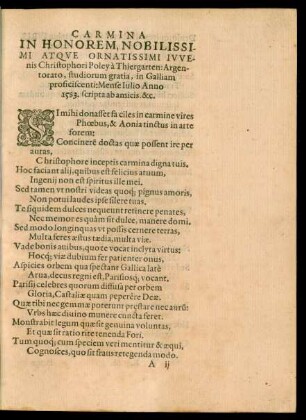 CARMINA
IN HONOREM, NOBILISSI-
MI ATQVE ORNATISSIMI IVVE-
nis Christophori Poley à Thiergarten: Argen-
torato, studiorum gratia, in Galliam
proficiscenti: Mense Iulio Anno
1583. scripta ab amicis. &c.
SI mihi donasset faciles in carmine vires
Phœbus, & Aonia tinctus in arte
forem:
Concinerē doctas quæ possent ire per
auras,
Christophore inceptis carmina digna tuis.
Hoc faciant alij, quibus est felicius atuum,
Ingenij non est spiritus ille mei.
Sed tamen vt nostri videas quoq; pignus amoris,
Non potui laudes ipse silere tuas.
Te siquidem dulces nequeunt retinere penates,
Nec memores quàm sit dulce, manere domi.
Sed modo longinquas vt possis cernere terras,
Multa feres æstus tædia, multa viæ.
Vade bonis auibus, quo te vocat inclyta virtus:
Hocq; viæ dubium fer patienter onus.
Aspicies orbem qua spectant Gallica latè
Arua, decus regni est, Parisiosq; vocant.
Parisij celebres quorum diffusa per orbem
Gloria, Castaliæ quam peperêre Deæ.
Quæ tibi nec geminæ poterunt præstare nec aurū:
Vrbs hæc diuino munere cuncta feret.
Monstrabit legum quæ sit genuina voluntas,
Et quæ sit ratio rite tenenda Fori.
Tum quoq; cum speciem veri mentitur & æqui,
Cognosces, quo sit fraus retegenda modo.
A ij